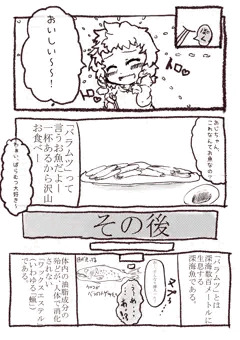 ぱく
おいしい～～！
トロ
トロ
おじちゃん、
これなんてお魚なの？
「バラムツ」って
言うお魚だよー
一杯あるから沢山
お食べー
わぁい、ばらむつ大好き～
その後
「バラムツ」とは
深海数百メートルに
生息する
深海魚である。
体内の油脂成分の
殆どが人体で消化
されない
「ワックスエステル」
（いわゆる「蝋」）
である。